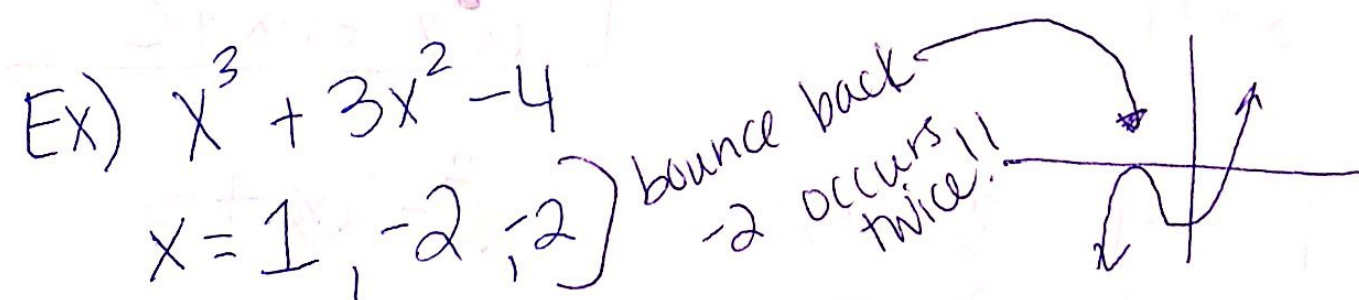 Ex) x³ + 3x² - 4
x = 1, -2, -2)
bounce back
-2 occurs
twice!!